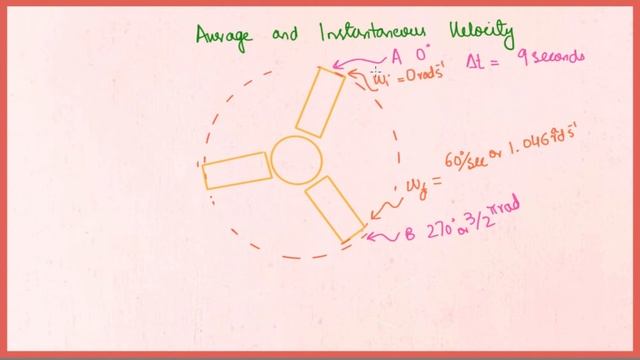 Average and Instantaneous Velocity
A 0° Δt = 9 seconds
ωi = 0 rads⁻¹
ωf = 60°/sec or 1.046 rads⁻¹
B 270° or 3/2 π rad